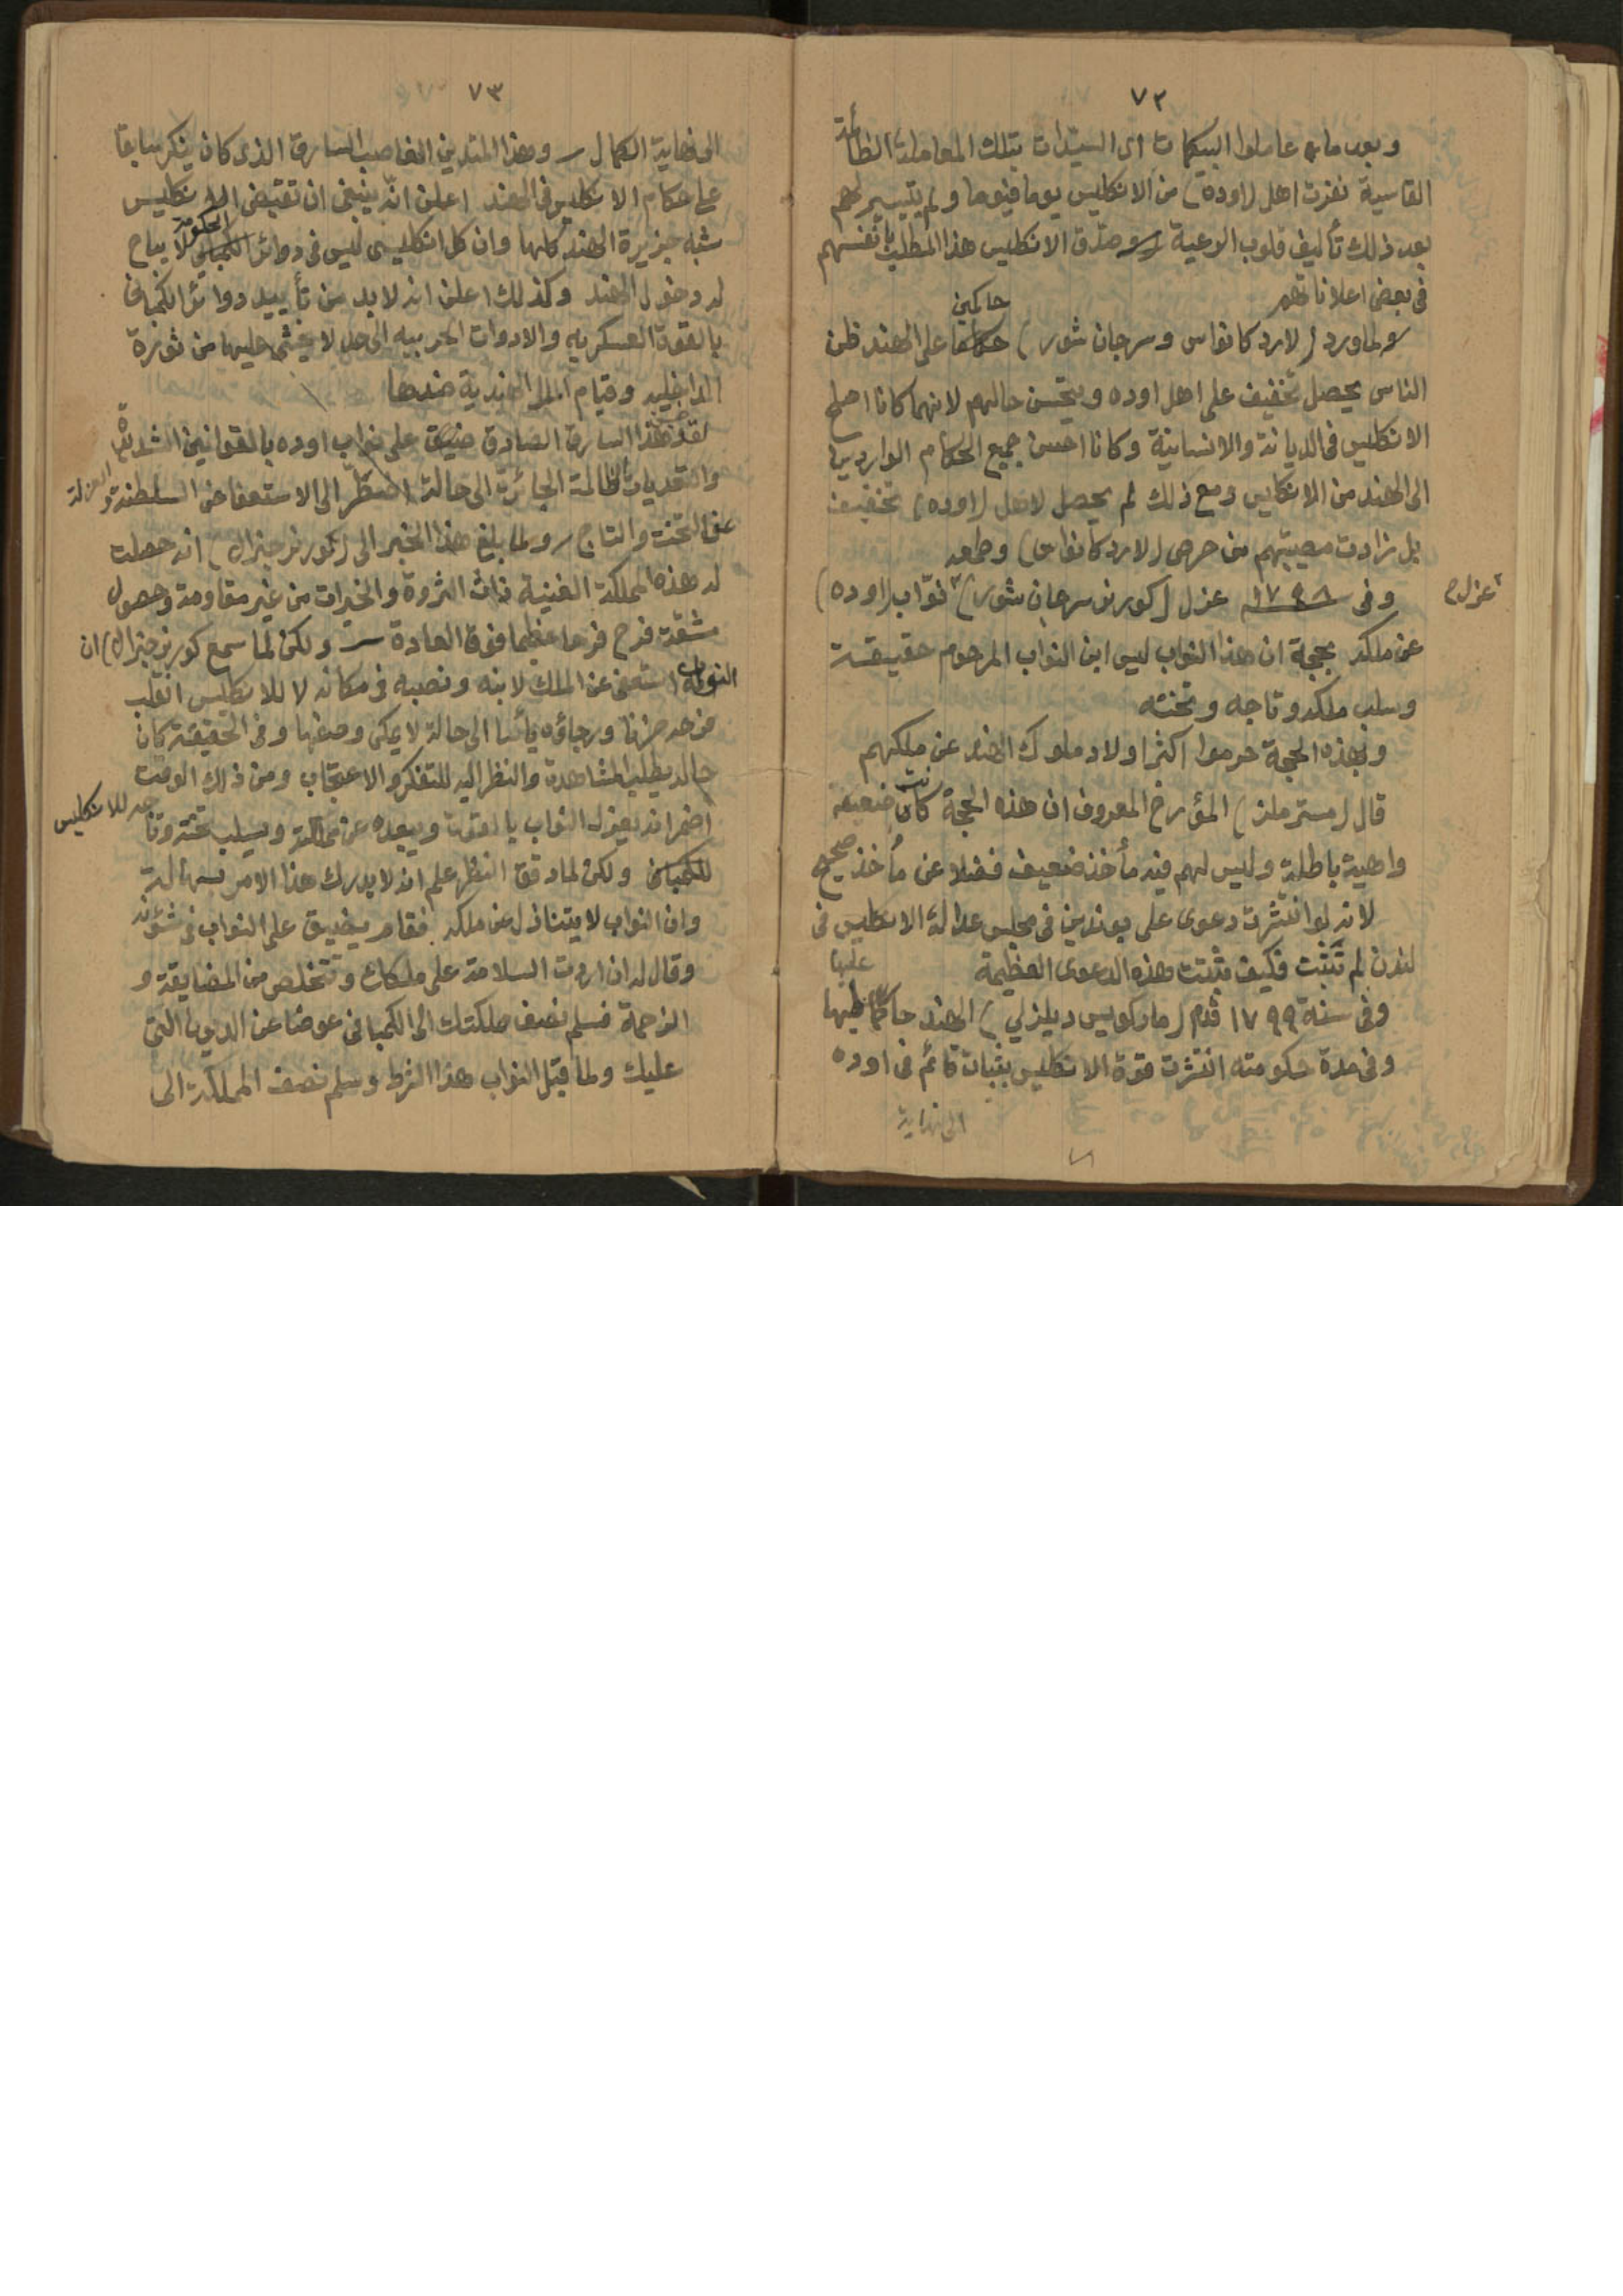 ٧٢
وبعد ما عاملوا البيكمات اى السيدات بتلك المعاملة الظالمة
القاسية نفرت اهل (اوده) من الانكليس يوما فيوما ولم يتيسر لهم
بعد ذلك تأليف قلوب الرعية وصدق الانكليس هذا المطلب بانفسهم
فى بعض اعلاناتهم
ولما ورد (لارد كانواس وسرجان شور) حاكمين على الهند ظن
الناس يحصل تخفيف على اهل اوده ويتحسن حالهم لانهما كانا اصلح
الانكليس فى الديانة والانسانية وكانا احسن جميع الحكام الواردين
الى الهند من الانكليس ومع ذلك لم يحصل لاهل (اوده) تخفيف
بل زادت مصيبتهم من حرص (لارد كانواس) وطمعه
وفى ١٧٩٨ عزل (كورنر سرجان شور) نوّاب (اوده)
عزل
عن ملكه بحجة ان هذا النواب ليس ابن النواب المرحوم حقيقة
وسلب ملكه وتاجه وتخته
وبهذه الحجة حرموا اكثر اولاد ملوك الهند عن ملكهم
قال (مستر ملز) المؤرخ المعروف ان هذه الحجة كانت ضعيفة
واهية باطلة وليس لهم فيه مأخذ ضعيف فضلا عن مأخذ صحيح
لانه لو انتشرت دعوى على بوندين فى مجلس عدالة الانكليس فى
لندن لم تثبت فكيف تثبت هذه الدعوى العظيمة
وفى سنة ١٧٩٩ قدم (ماركويس ديلزلي) الهند حاكما عليها
وفى مدة حكومته انتشرت قوة الانكليس بثبات قائم فى اوده
الى نهاية
٧٣
الى نهاية الكمال وهذا المتدين الغاصب السارق الذى كان ينكر سابقا
على حكام الانكليس فى الهند اعلن انّه ينبغى ان تقتبض الانكليس
شبه جزيرة الهند كلها وان كل انكليسى ليس فى دوائر الحكومة لا يباح
له دخول الهند وكذلك اعلن انه لابد من تأييد دوائر الكمبانى
بالقوة العسكريه والادوات الحربيه الى حد لا يخشى عليها من ثورة
الداخليه وقيام الملل الهندية ضدها
لقد هذا السارق الصادق ضيق على نواب اوده بالقوانين الشديدة
والتعديات الظالمة الجائرة الى حالة اضطرّ الى الاستعفا عن السلطنة والعزلة
عن التخت والتاج ولما بلغ هذا الخبر الى (كورنر جنرال) انه حصلت
له هذه المملكة الغنية ذات الثروة والخيرات من غير مقاومة وحصول
مشقة فرح فرحا عظيما فوق العادة ولكن لما سمع كورنر جنرال) ان
النواب استعفى عن الملك لابنه ونصبه فى مكانه لا للانكليس انقلب
فرحه حزنا ورجاؤه يأسا الى حالة لا يمكن وصفها وفى الحقيقة كان
حاله يطلب المشاهدة والنظر اليه للتفكر والاعتجاب ومن ذلك الوقت
اضمر انه يعزل النواب بالقوة ويبعده عن مملكته ويسلب تخته وتاجه للانكليس
للكمبانى ولكن لما دقق النظر علم انه لا يدرك هذا الامر بسهالة
وان النواب لا يتنازل عن ملكه فقام يضيق على النواب فى شؤنه
وقال له ان اردت السلامة على ملكك وتتخلص من المضايقة و
الزحمة فسلم نصف ملكتك الى الكمبانى عوضا عن الديون التى
عليك ولما قبل النواب هذا الشرط وسلم نصف المملكة الى